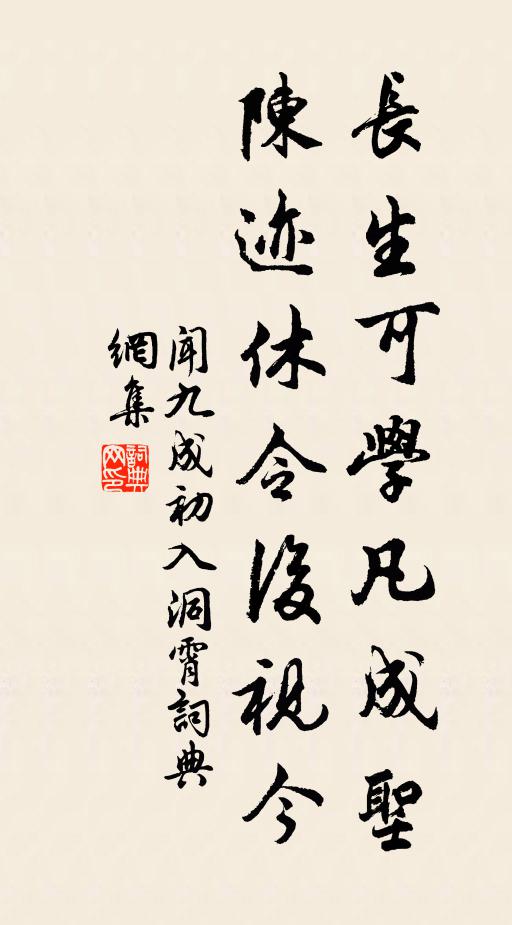 長生可學凡成聖
陳迹休令後視今
聞九成初入洞霄詞典
網集
詞典
网印